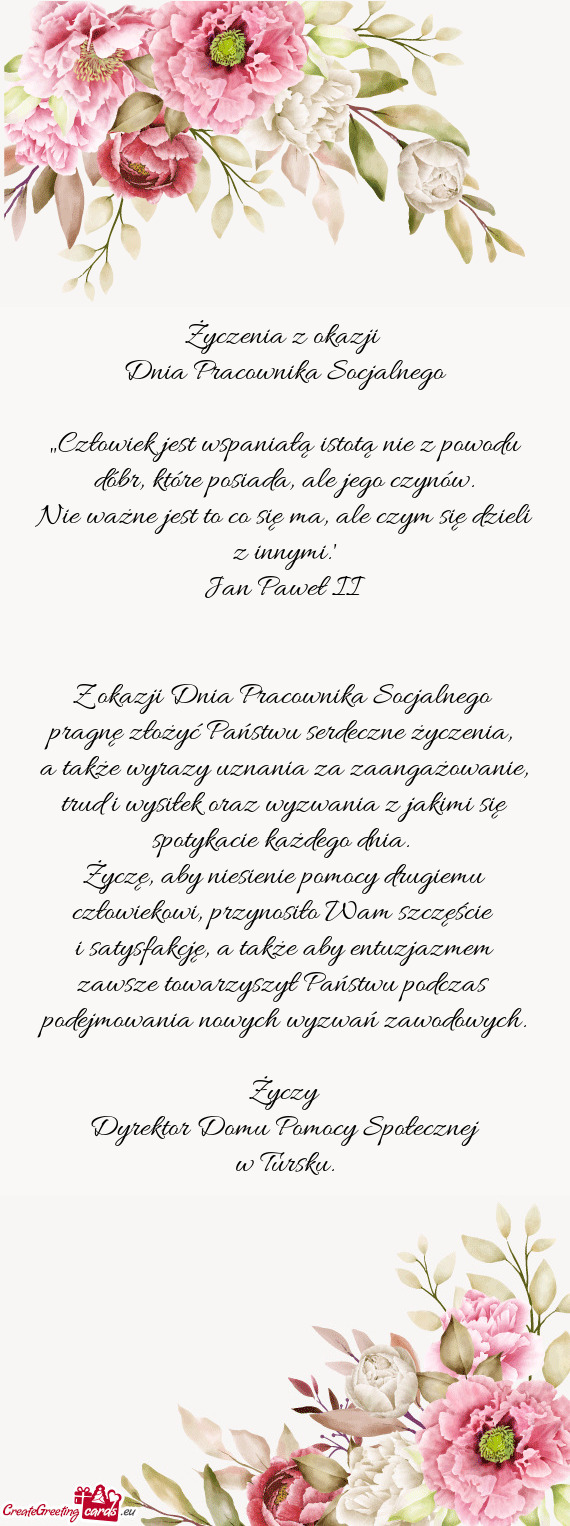 Życzenia z okazji
Dnia Pracownika Socjalnego
„Człowiek jest wspaniałą istotą nie z powodu
dóbr, które posiada, ale jego czynów.
Nie ważne jest to co się ma, ale czym się dzieli
z innymi.'
Jan Paweł II
Z okazji Dnia Pracownika Socjalnego
pragnę złożyć Państwu serdeczne życzenia,
a także wyrazy uznania za zaangażowanie,
trud i wysiłek oraz wyzwania z jakimi się
spotykacie każdego dnia.
Życzę, aby niesienie pomocy drugiemu
człowiekowi, przynosiło Wam szczęście
i satysfakcję, a także aby entuzjazmem
zawsze towarzyszył Państwu podczas
podejmowania nowych wyzwań zawodowych.
Życzy
Dyrektor Domu Pomocy Społecznej
w Tursku.
CreateGreeting cards .eu